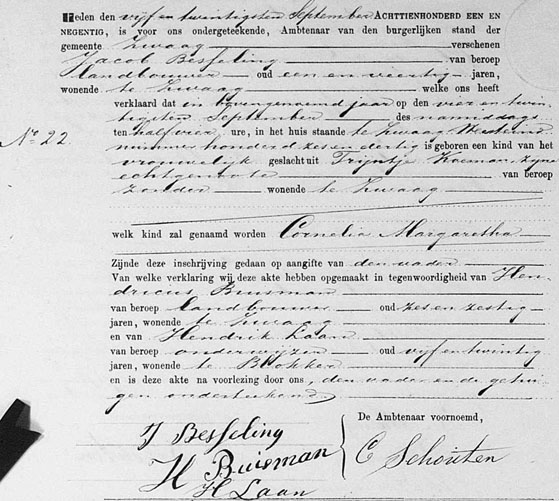 Heden den vijf en twintigsten September ACHTTIENHONDERD EEN EN
NEGENTIG, is voor ons ondergeteekende, Ambtenaar van den burgerlijken stand der
gemeente Zwaag verschenen
Jacob Besseling van beroep
landbouwer oud een en veertig jaren,
wonende te Zwaag welke ons heeft
verklaard dat in bovengenoemd jaar op den vier en twin
tigsten September des namiddags
ten half vier ure, in het huis staande te Zwaag
No 22.
nummer honderd zes en dertig is geboren een kind van het
vrouwelijk geslacht uit Trijntje Koeman, zijne
echtgenoote van beroep
zonder wonende te Zwaag
welk kind zal genaamd worden Cornelia Margaretha
Zijnde deze inschrijving gedaan op aangifte van den vader
Van welke verklaring wij deze akte hebben opgemaakt in tegenwoordigheid van Hen
dricus Buisman
van beroep landbouwer oud zes en zestig
jaren, wonende te Zwaag
en van Hendrik Laan
van beroep onderwijzer oud vijf en twintig
jaren, wonende te Blokker
en is deze akte na voorlezing door ons, den vader en de getui
gen onderteekend.
De Ambtenaar voornoemd,
J Besseling
H Buisman
C Schouten
H Laan